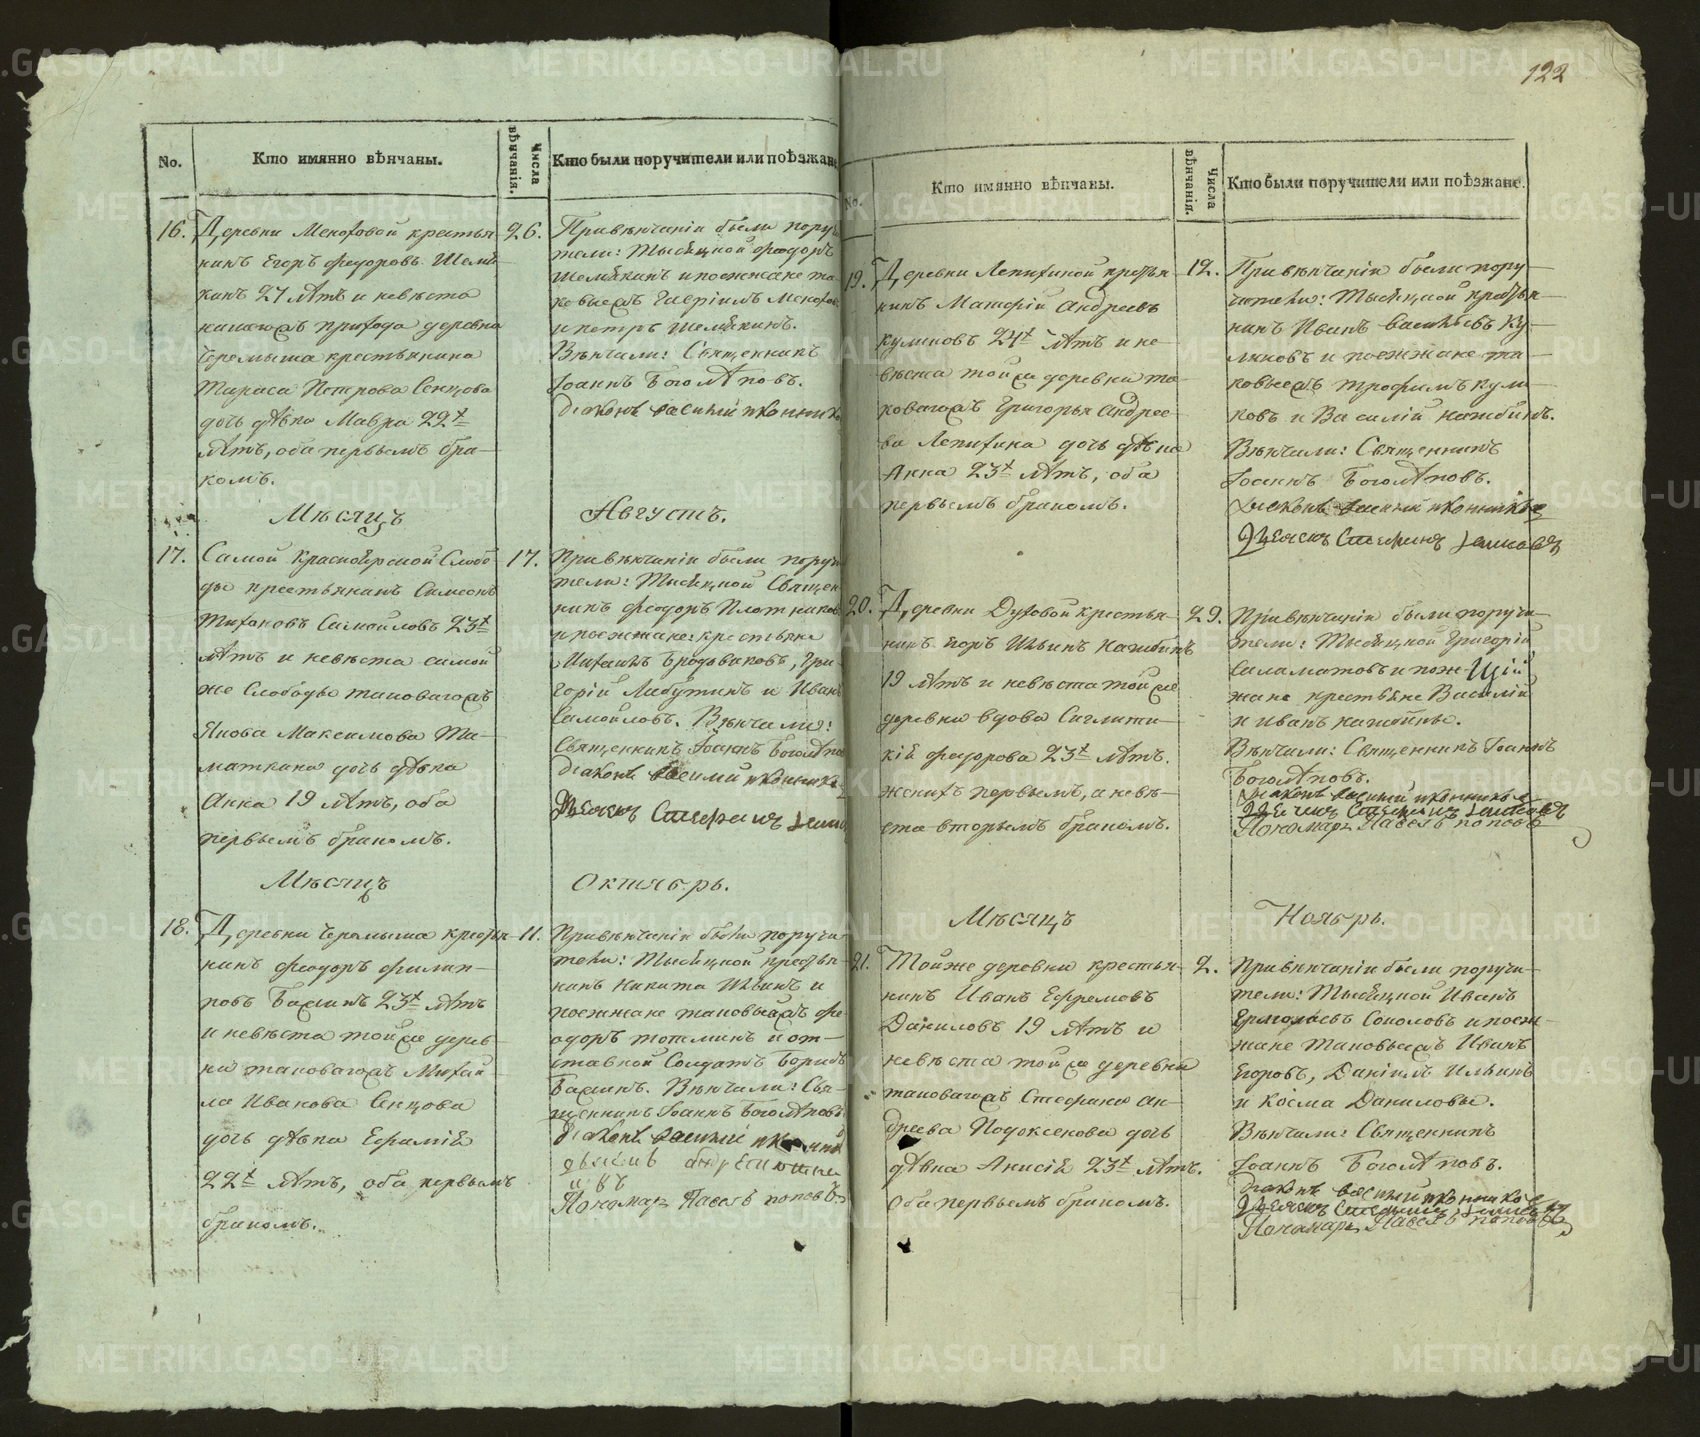 122
No.
Кто имянно вѣнчаны.
Числа вѣнчанія.
Кто были поручители или поѣзжане
16.
Деревни Мехофовой крестья-
нинъ Егоръ Федоровъ Шемя-
кинъ 27 лѣтъ и невѣста
прихода деревни
Черемыша крестьянина
Тараса Петрова Сенцова
дочь дѣвка Мавра 22хъ
лѣтъ, оба первымъ бра-
комъ.
26.
При вѣнчаніи были поручи
тели: Тысяцкой Феодоръ
Шемякинъ и поезжане та-
ковыежъ Гавріилъ
и петръ Шемякинъ.
Вѣнчали: Священникъ
Іоаннъ Боголѣповъ.
Діаконъ василій иконников
Мѣсяцъ
Августъ.
17.
Самой Красноярской Слобо
ды крестьянинъ Симеонъ
Тихоновъ Самойловъ 23хъ
лѣтъ и невѣста самой
же Слободы таковагожъ
Якова Максимова Та-
маткина дочь дѣвка
Анна 19 лѣтъ, оба
первымъ бракомъ.
17.
При вѣнчаніи были поручи
тели: Тысяцкой Священ
никъ Феодоръ Плотников
и поезжане: крестьяне
Михаилъ Бродовиковъ, Гри-
горій Лабутинъ и Иванъ
Самойловъ. Вѣнчали:
Священникъ Іоаннъ Боголѣпов
Діаконъ василій иконников
Дьячекъ Стефанъ
Мѣсяцъ
Октябрь.
18.
Деревни Черемыша крестья-
нинъ Феодоръ Филип-
повъ Бажинъ 23хъ лѣтъ
и невѣста тойже дерев-
ни таковагожъ Михай-
ла Иванова Сенцова
дочь дѣвка Ефимія
22хъ лѣтъ, оба первымъ
бракомъ.
11.
При вѣнчаніи были поручи-
тели: Тысяцкой крестья-
нинъ Никита Ильинъ и
поезжане таковыежъ Фе
одоръ топминъ и от-
ставной Солдатъ Борисъ
Бажинъ. Вѣнчали: Свя-
щенникъ Іоаннъ Боголѣповъ
Діаконъ василій
дьячекъ
Пономарь Павелъ поповъ
No.
Кто имянно вѣнчаны.
Числа вѣнчанія.
Кто были поручители или поѣзжане.
19.
Деревни Лепихиной крестья-
нинъ Матфій Андреевъ
Куликовъ 24хъ лѣтъ и не-
вѣста тойже деревни та-
ковагожъ Григорья Андрее-
ва Лепихина дочь дѣвка
Анна 23хъ лѣтъ, оба
первымъ бракомъ.
12.
При вѣнчаніи были пору-
чители: Тысяцкой крестья-
нинъ Иванъ Васильевъ Ку-
ликовъ и поезжане та-
ковыежъ Трофимъ кули-
ковъ и Василій нагибинъ.
Вѣнчали: Священникъ
Іоаннъ Боголѣповъ.
Діаконъ василій иконниковъ
Дьячекъ Стефанъ
20.
Деревни Духовой крестья-
нинъ Егоръ Ильинъ Нагибинъ
19 лѣтъ и невѣста тойже
деревни вдова
Федорова 23хъ лѣтъ.
женихъ первымъ, а невѣ-
ста вторымъ бракомъ.
29.
При вѣнчаніи были поручи-
тели: Тысяцкой Григорій
Саламатовъ и поеж-
жане крестьяне Василій
и Иванъ нагибины.
Вѣнчали: Священникъ Іоаннъ
Боголѣповъ.
Діаконъ василій иконников
Дьячекъ Стефанъ
Пономарь Павелъ поповъ
Мѣсяцъ
Ноябрь.
21.
Тойже деревни крестья-
нинъ Иванъ Ефремовъ
Даниловъ 19 лѣтъ и
невѣста тойже деревни
таковагожъ Стефана Ан-
дреева Подоксенова дочь
дѣвка Анисія 23хъ лѣтъ.
Оба первымъ бракомъ.
2.
При вѣнчаніи были поручи-
тели: Тысяцкой Иванъ
Ермолаевъ Соколовъ и поез-
жане таковыежъ Иванъ
Егоровъ, Даніилъ Ильинъ
и Косма Даниловы.
Вѣнчали: Священникъ
Іоаннъ Боголѣповъ.
Діаконъ василій иконников
Дьячекъ Стефанъ
Пономарь Павелъ поповъ
METRIKI.GASO-URAL.RU